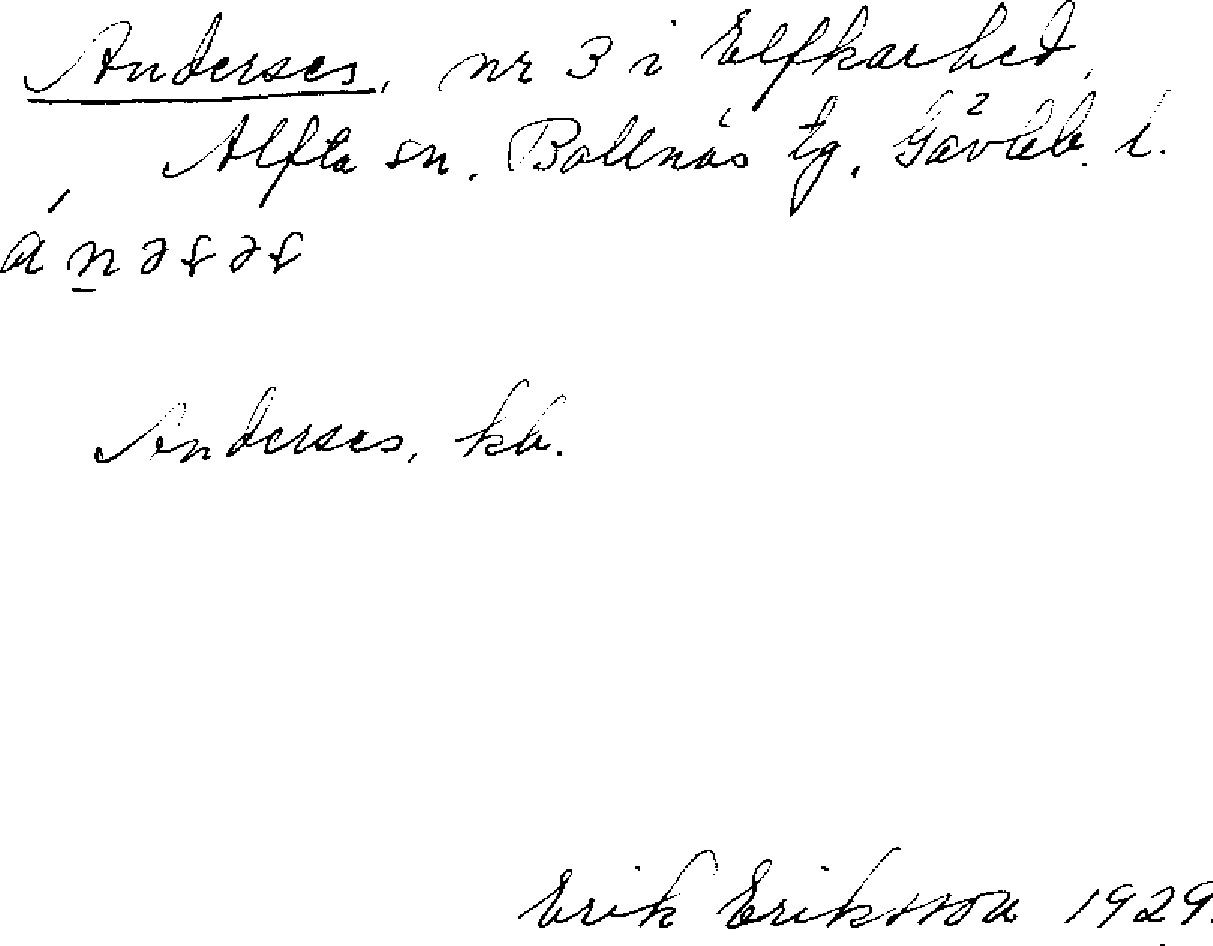 Anderses, nr 3 i Elfkarhed,
Alfta sn. Bollnäs tg. Gävleb. l.
Anderses, kb.
Erik Eriksson 1929.